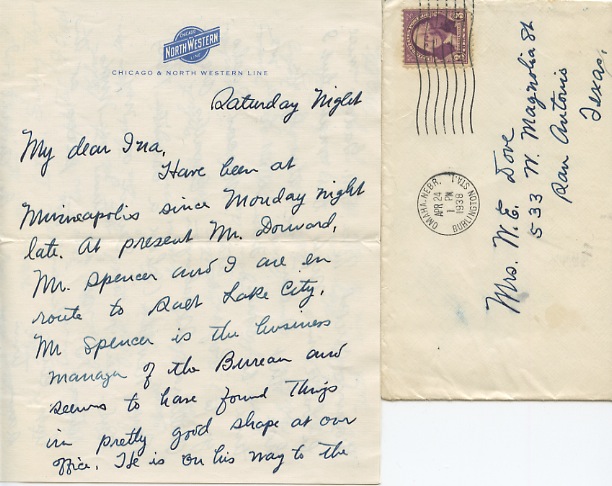 CHICAGO
NORTH WESTERN
LINE
CHICAGO & NORTH WESTERN LINE
Saturday Night
My dear Ina,
Have been at
Minneapolis since Monday night
late. At present Mr. Dorward,
Mr. Spencer and I are en
route to Salt Lake City.
Mr Spencer is the business
manager of the Bureau and
seems to have found things
in pretty good shape at our
office. He is on his way to the
OMAHA, NEBR.
APR 24
1 PM
1938
BURLINGTON STA.
Mrs. W.E. Dove
533 W. Magnolia St
San Antonio
Texas,